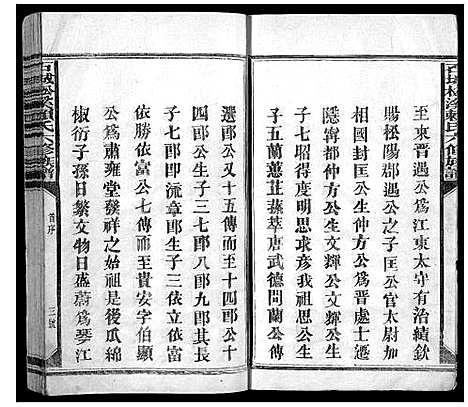 至東晉遇公爲江東太守有治績欽
賜松陽郡遇公之子匡公官太尉加
封相國匡公生碩公爲晉處士遷
隱寧都仲方公生文輝公生
子七得度明思求彥我祖思公生
子五蘭蕙茳蔬萃唐武德間蘭公傳
選郎公又十五傳而十四郎公十
四郎公生子三七郎八郎九郎其長
子七郎即流章郎生子三依立依
依勝依富公七傳而至貴安字伯顯
公爲肅雍堂發祥之始祖是後瓜綿
椒衍子孫日繁文物日盛蔚爲琴江
古城松溪賴氏六修族譜
首序
三號